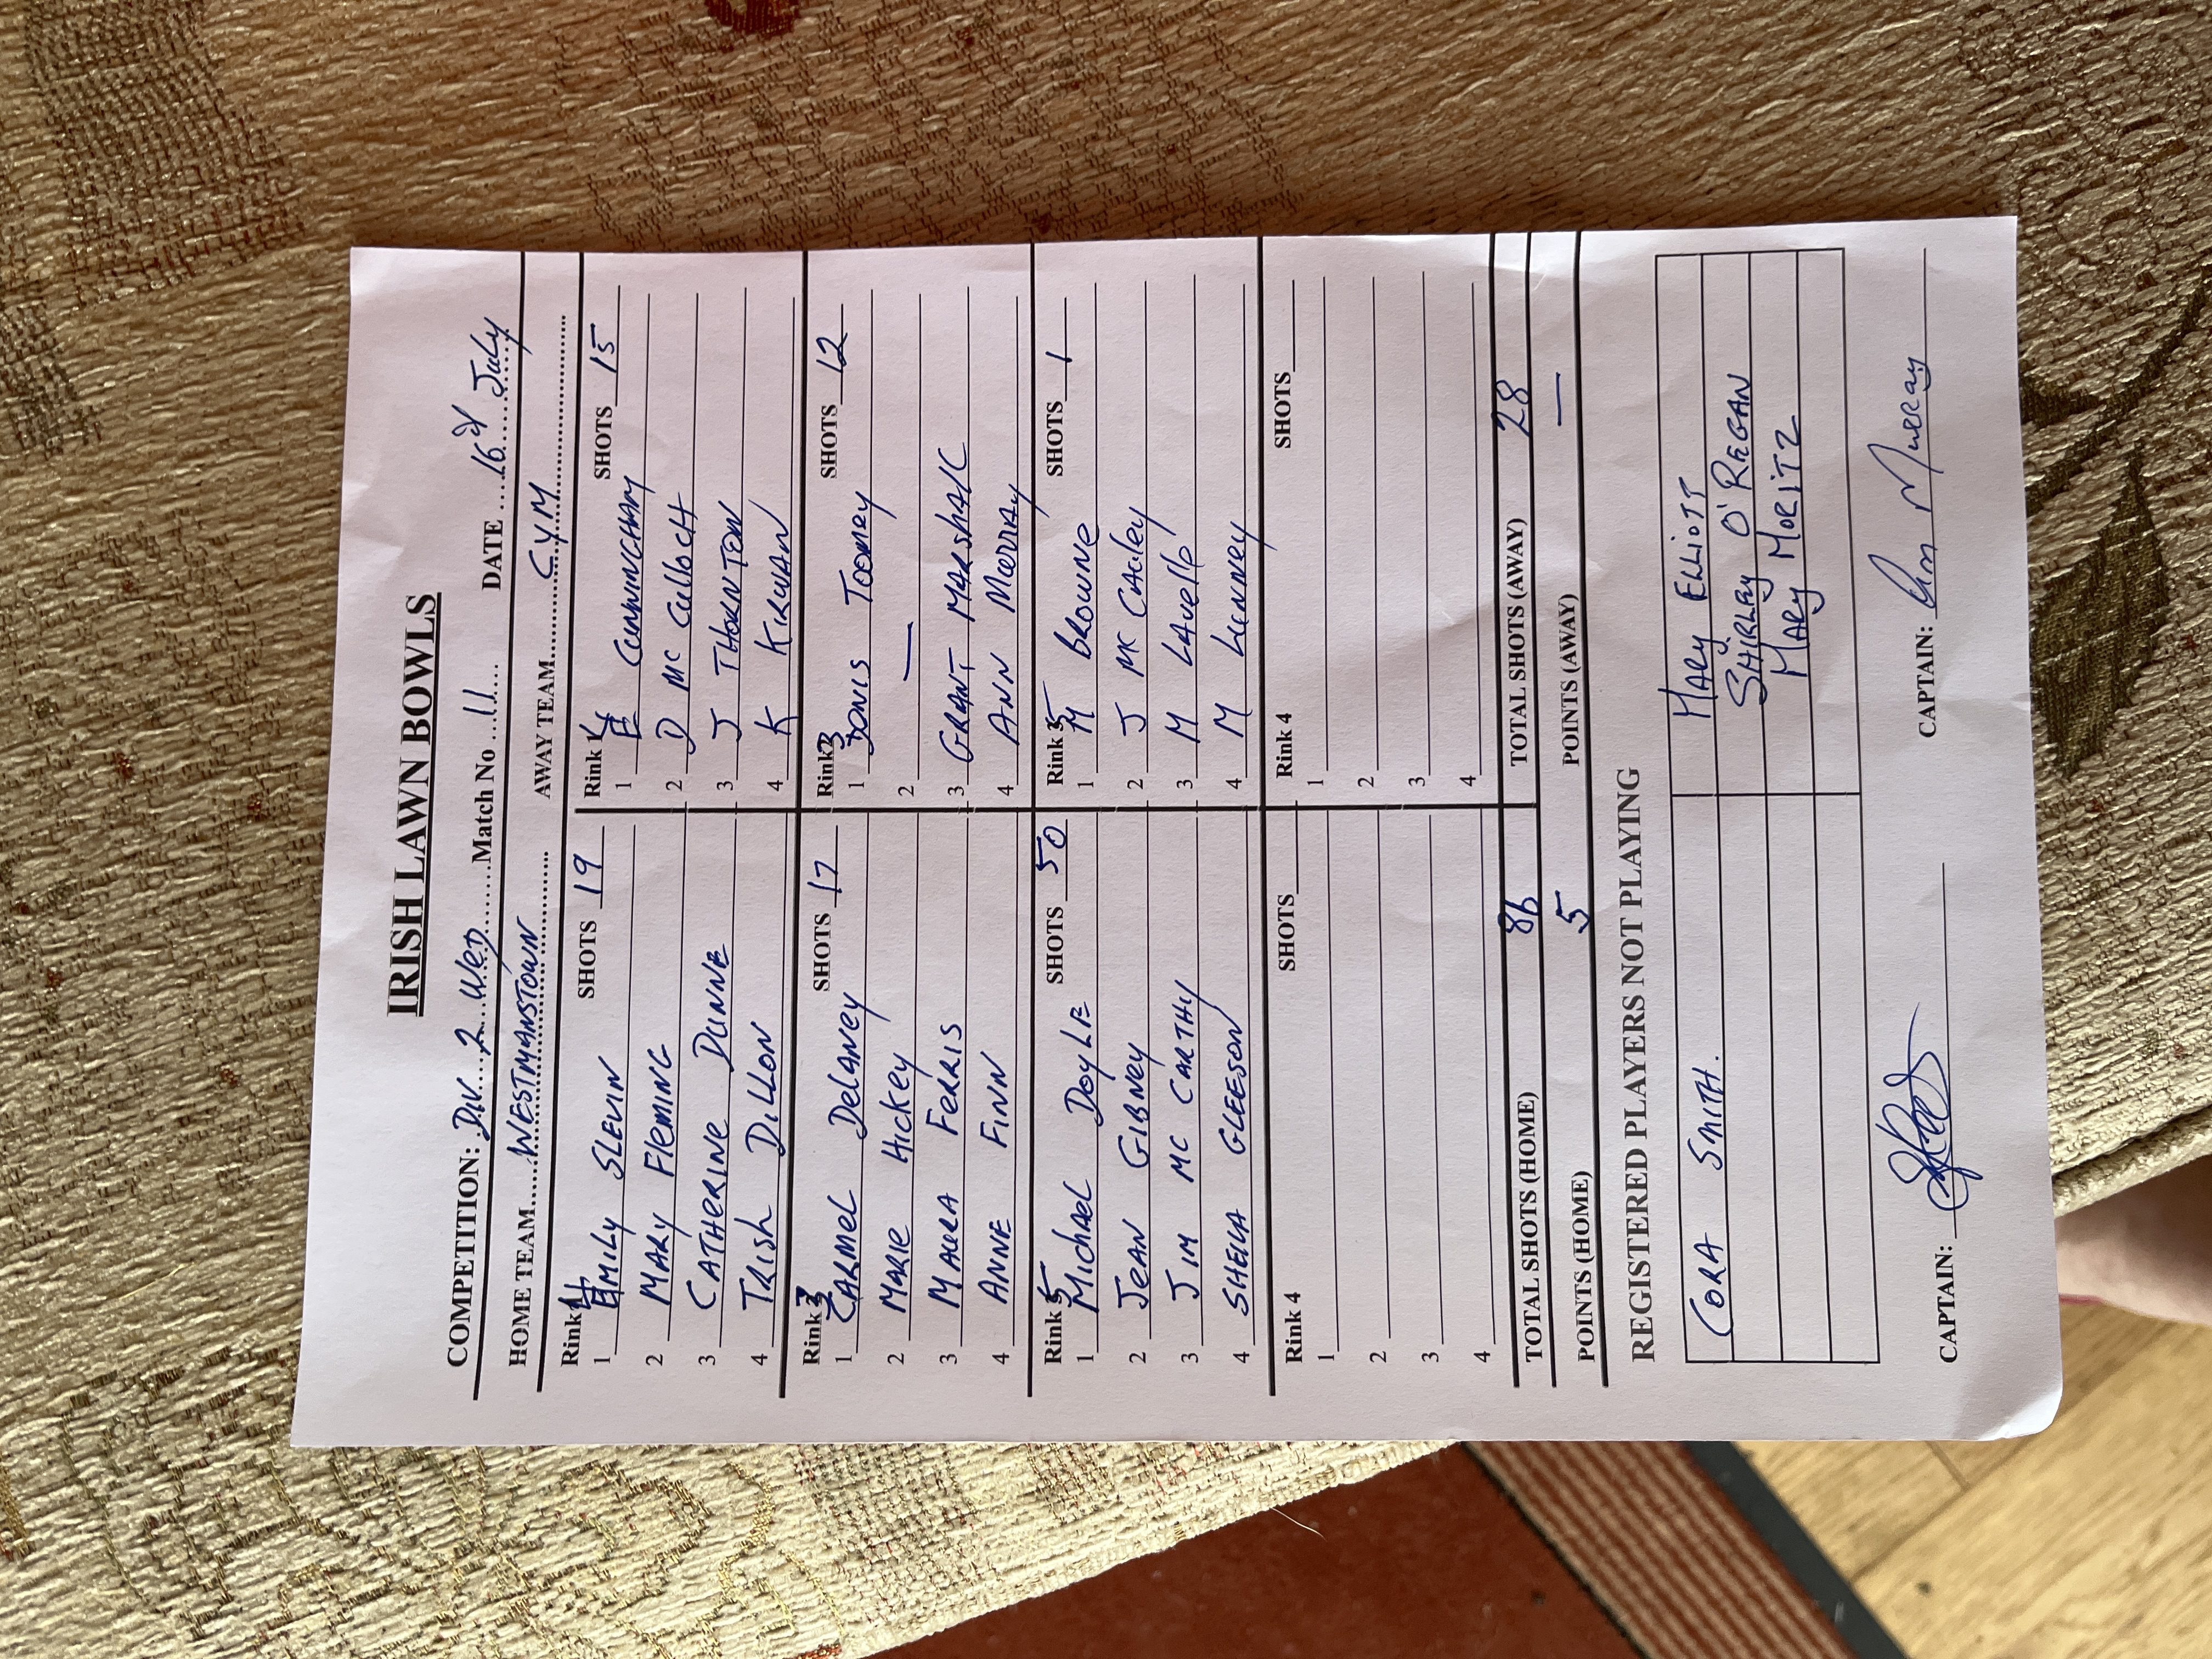 IRISH LAWN BOWLS
COMPETITION: DIV. 2 WED Match No 11 DATE 16th July
HOME TEAM WESTMANSTOWN AWAY TEAM CYM
Rink SHOTS 19
1 EMILY SLEVIN
2 MARY FleMING
3 CATHERINE DUNNE
4 TRISH DILLON
Rink SHOTS 15
1 E CUNNINGHAM
2 D MC CullOCH
3 J THORNTON
4 K KIRWAN
Rink 3 SHOTS 17
1 CARMEL DelANey
2 MARIE HICKEY
3 MAURA FERRIS
4 ANNE FINN
Rink 3 SHOTS 12
1 TOOMEY
2 —
3 GRANT MARSHALL
4 ANN MURRAY
Rink 5 SHOTS 50
1 MIChAeL DOyLE
2 JEAN GIBNEY
3 JIM MC CARTHY
4 SHEILA GLEESON
Rink 5 SHOTS 1
1 M BROWNE
2 J MC CAuley
3 M LAVellE
4 M LUNNEY
Rink 4 SHOTS
1
2
3
4
Rink 4 SHOTS
1
2
3
4
TOTAL SHOTS (HOME) 86 TOTAL SHOTS (AWAY) 28
POINTS (HOME) 5 POINTS (AWAY) —
REGISTERED PLAYERS NOT PLAYING
CORA SMITH. MARY ELLIOTT
SHIRLEY O'REGAN
MARY MORITZ
CAPTAIN: CAPTAIN: Ann Murray